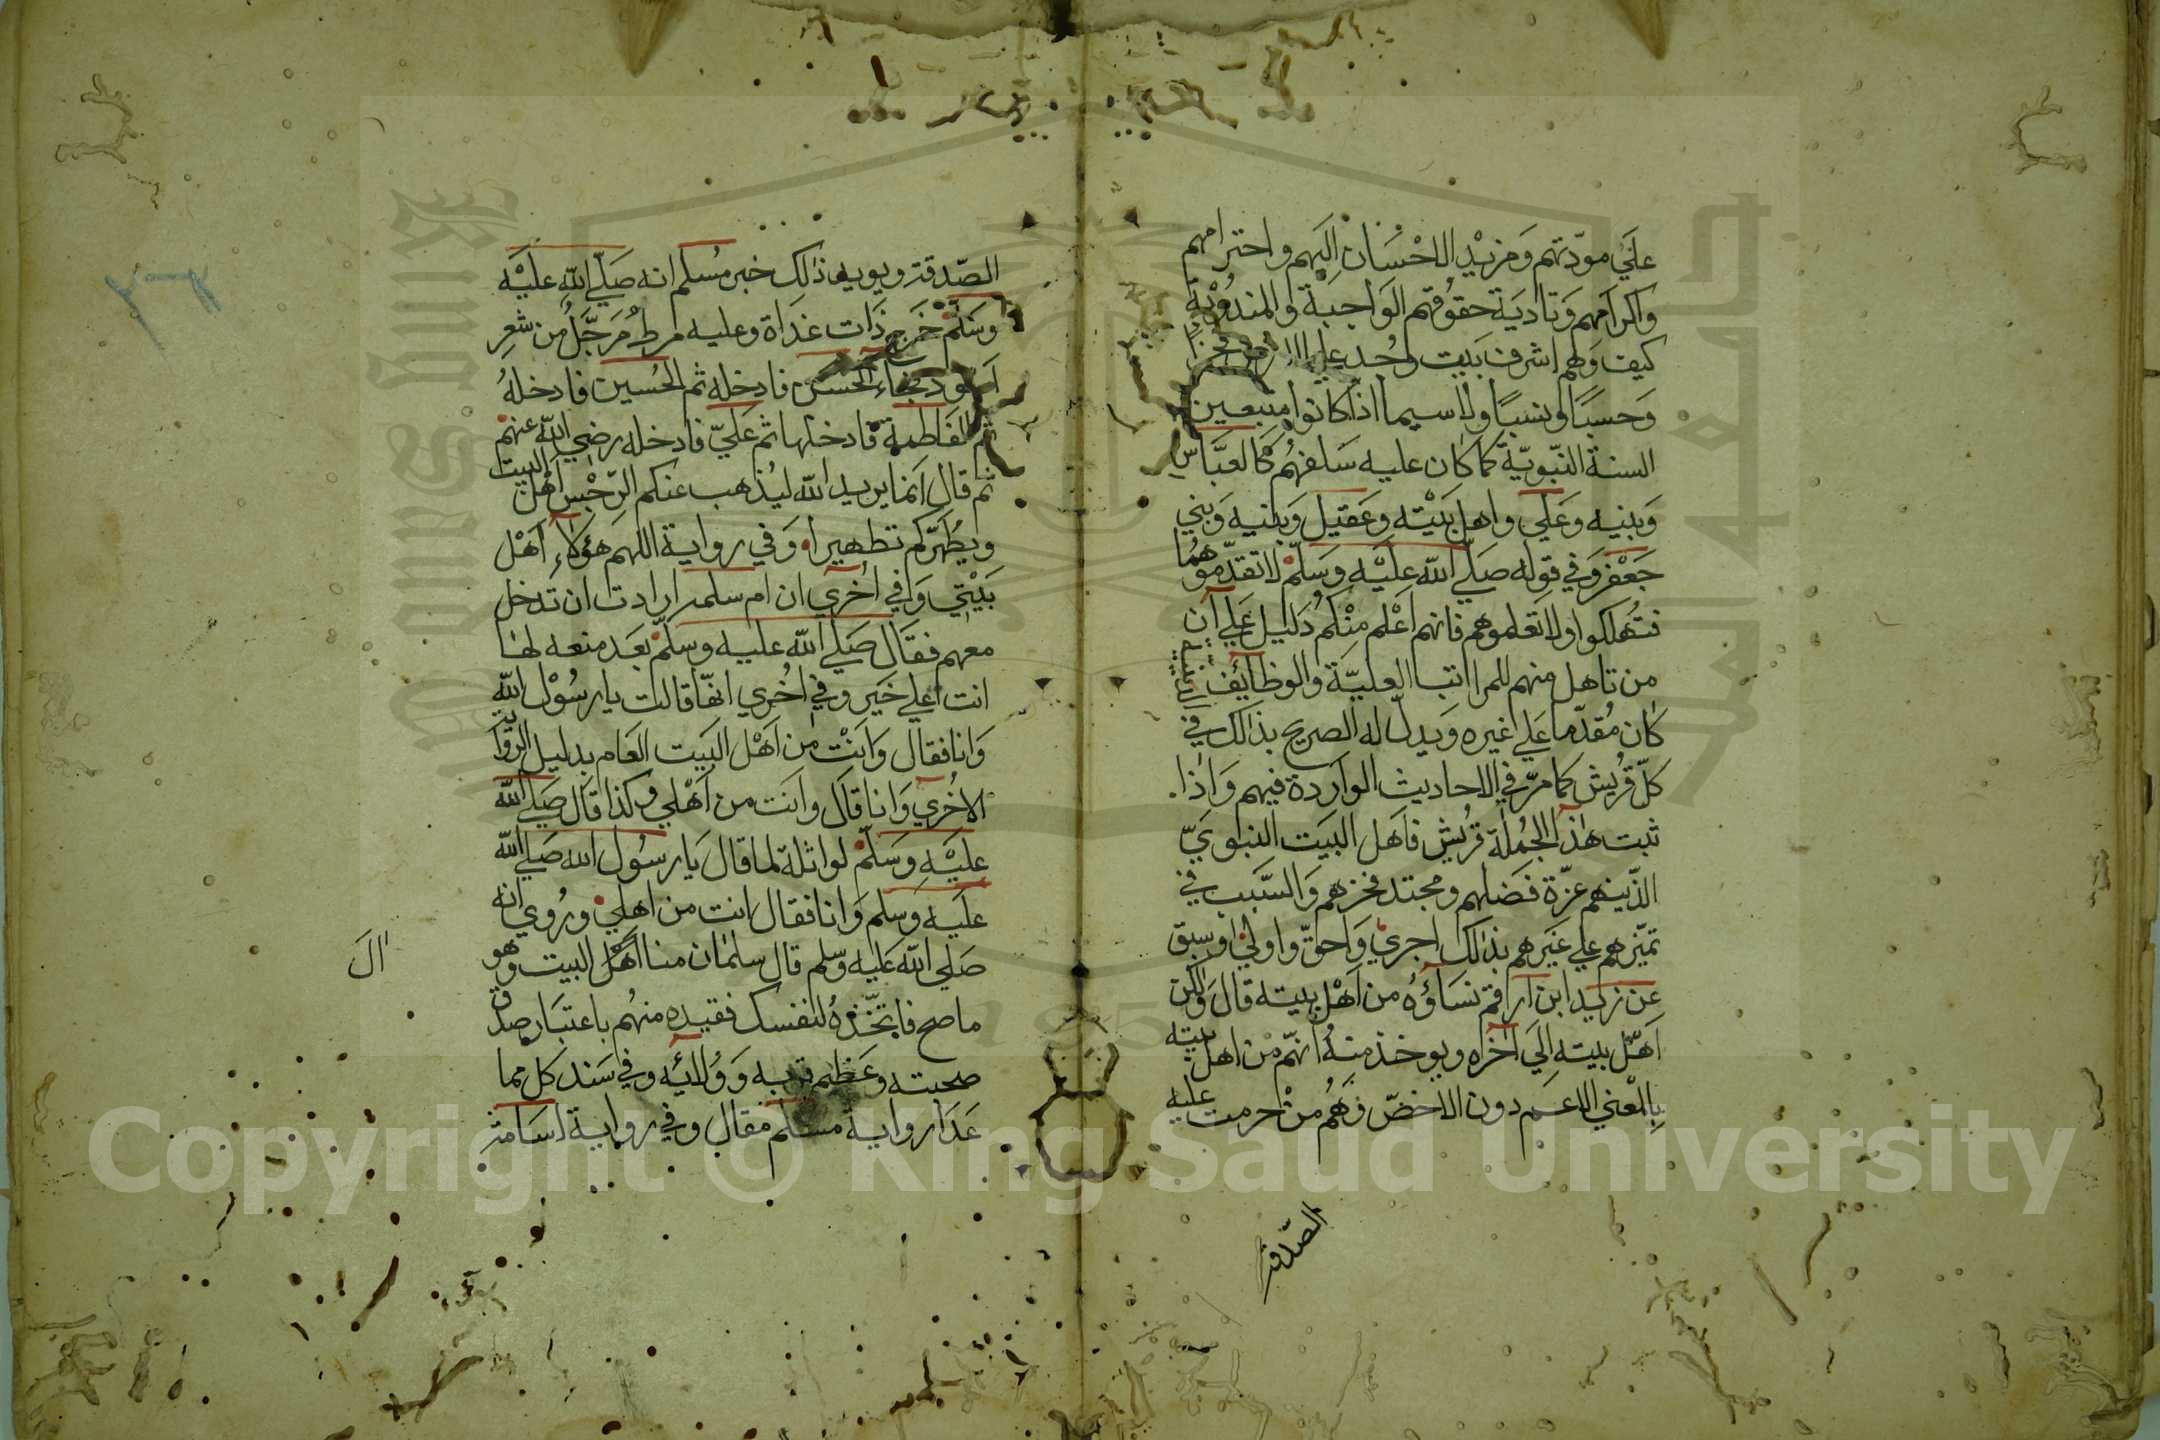 علي مودتهم ومزيد الاحسان اليهم واحترامهم
واكرامهم وتادية حقوقهم الواجبة والمندوبة
كيف وهم اشرف بيت وجد علي الارض فخرا
وحسبا ونسبا ولا سيما اذا كانوا متبعين
السنة النبوية كما كان عليه سلفهم كالعباس
وبنيه وعلي واهل بيته وعقيل وبنيه وبني
جعفر وفي قوله صلي الله عليه وسلم لا تقدموهما
فتهلكوا ولا تعلموهم فانهم اعلم منكم دليل علي ان
من تاهل منهم للمراتب العلية والوظائف الدينية
كان مقدما علي غيره ويدل له الصريح بذلك في
كل قريش كما مر في الاحاديث الواردة فيهم واذا
ثبت هذا لجملة قريش فاهل البيت النبوي
الذينهم عزة فضلهم ومجتد فخرهم والسبب في
تميزهم علي غيرهم بذلك احري واحق واولي وسبق
عن زيد ابن ارقم نساؤه من اهل بيته قال ولكن
اهل بيته الي اخره ويوخذ منه انهم من اهل بيته
بالمعني الاعم دون الاخص وهم من حرمت عليه
الصدقة
الصدقة ويويد ذلك خبر مسلم انه صلي الله عليه
وسلم خرج ذات غداة وعليه مرط مرجل من شعر
اسود فجاء الحسن فادخله ثم الحسين فادخله
ثم لفاطمة فادخلها ثم علي فادخله رضي الله عنهم
ثم قال انما يريد الله ليذهب عنكم الرجس اهل البيت
ويطهركم تطهيرا وفي رواية اللهم هؤلاء اهل
بيتي وفي اخري ان ام سلمة ارادت ان تدخل
معهم فقال صلي الله عليه وسلم بعد منعه لها
انت علي خير وفي اخري انها قالت يا رسول الله
وانا فقال وانت من اهل البيت العام بدليل الرواية
الاخري وانا قال وانت من اهلي وكذا قال صلي الله
عليه وسلم لواثلة لما قال يا رسول الله صلي الله
عليه وسلم وانا فقال انت من اهلي وروي انه
صلي الله عليه وسلم قال سلمان منا اهل البيت وهو
ما صح فاتخذه لنفسك فقيده منهم باعتبار صدق
صحبته وعظم قربه وولائه وفي سند كل مما
عدا رواية مسلم مقال وفي رواية اسامة
ال